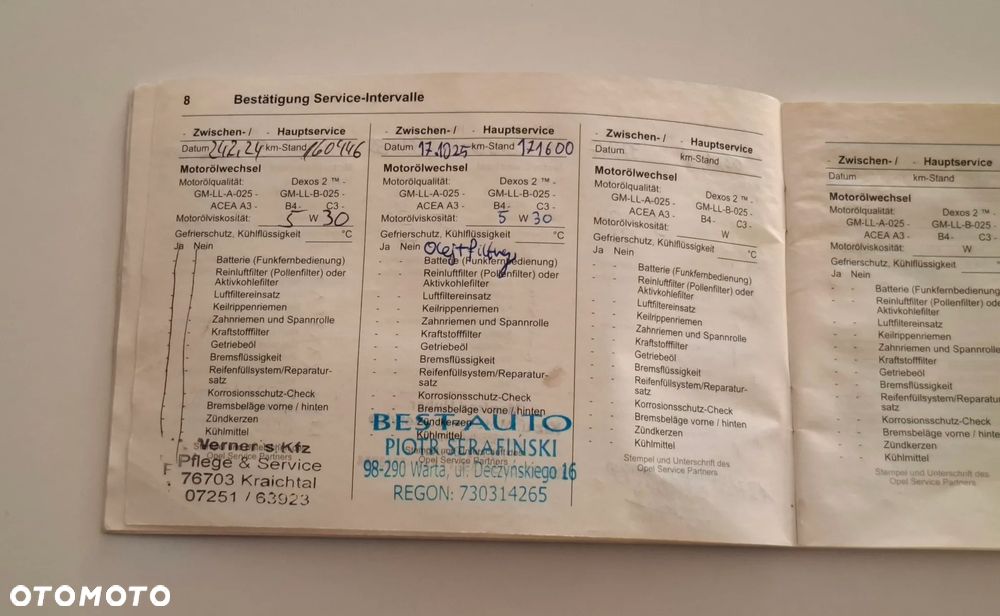 8 Bestätigung Service-Intervalle
- Zwischen- / - Hauptservice
Datum 242.24 km-Stand 160446
Motorölwechsel
Motorölqualität: Dexos 2 ™ -
GM-LL-A-025 - GM-LL-B-025 -
ACEA A3 - B4 - C3 -
Motorölviskosität: 5 W 30
Gefrierschutz, Kühlflüssigkeit °C
Ja Nein
Batterie (Funkfernbedienung)
Reinluftfilter (Pollenfilter) oder
Aktivkohlefilter
Luftfiltereinsatz
Keilrippenriemen
Zahnriemen und Spannrolle
Kraftstofffilter
Getriebeöl
Bremsflüssigkeit
Reifenfüllsystem/Reparatur-
satz
Korrosionsschutz-Check
Bremsbeläge vorne / hinten
Zündkerzen
Kühlmittel
Verner s Kfz
Pflege & Service
76703 Kraichtal
07251 / 63923
- Zwischen- / - Hauptservice
Datum 17.10.25 km-Stand 171600
Motorölwechsel
Motorölqualität: Dexos 2 ™ -
GM-LL-A-025 - GM-LL-B-025 -
ACEA A3 - B4 - C3 -
Motorölviskosität: 5 W 30
Gefrierschutz, Kühlflüssigkeit °C
Ja Nein Olej + filtry
Batterie (Funkfernbedienung)
- - Reinluftfilter (Pollenfilter) oder
Aktivkohlefilter
- - Luftfiltereinsatz
- - Keilrippenriemen
- - Zahnriemen und Spannrolle
- - Kraftstofffilter
- - Getriebeöl
- - Bremsflüssigkeit
- - Reifenfüllsystem/Reparatur-
satz
- - Korrosionsschutz-Check
- - Bremsbeläge vorne / hinten
Zündkerzen
Kühlmittel
BEST AUTO
PIOTR SERAFIŃSKI
98-290 Warta, ul. Deczyńskiego 16
REGON: 730314265
- Zwischen- / - Hauptservice
Datum km-Stand
Motorölwechsel
Motorölqualität: Dexos 2 ™ -
GM-LL-A-025 - GM-LL-B-025 -
ACEA A3 - B4 - C3 -
Motorölviskosität: W
Gefrierschutz, Kühlflüssigkeit °C
Ja Nein
- - Batterie (Funkfernbedienung)
- - Reinluftfilter (Pollenfilter) oder
Aktivkohlefilter
- - Luftfiltereinsatz
- - Keilrippenriemen
- - Zahnriemen und Spannrolle
- - Kraftstofffilter
- - Getriebeöl
- - Bremsflüssigkeit
- - Reifenfüllsystem/Reparatur-
satz
- - Korrosionsschutz-Check
- - Bremsbeläge vorne / hinten
- - Zündkerzen
- - Kühlmittel
Stempel und Unterschrift des
Opel Service Partners
- Zwischen- / - Hauptservice
Datum km-Stand
Motorölwechsel
Motorölqualität: Dexos 2 ™ -
GM-LL-A-025 - GM-LL-B-025 -
ACEA A3 - B4 - C3 -
Motorölviskosität: W
Gefrierschutz, Kühlflüssigkeit °C
Ja Nein
- - Batterie (Funkfernbedienung)
- - Reinluftfilter (Pollenfilter) oder
Aktivkohlefilter
- - Luftfiltereinsatz
- - Keilrippenriemen
- - Zahnriemen und Spannrolle
- - Kraftstofffilter
- - Getriebeöl
- - Bremsflüssigkeit
- - Reifenfüllsystem/Reparatur-
satz
- - Korrosionsschutz-Check
- - Bremsbeläge vorne / hinten
- - Zündkerzen
- - Kühlmittel
Stempel und Unterschrift des
Opel Service Partners
OTOMOTO